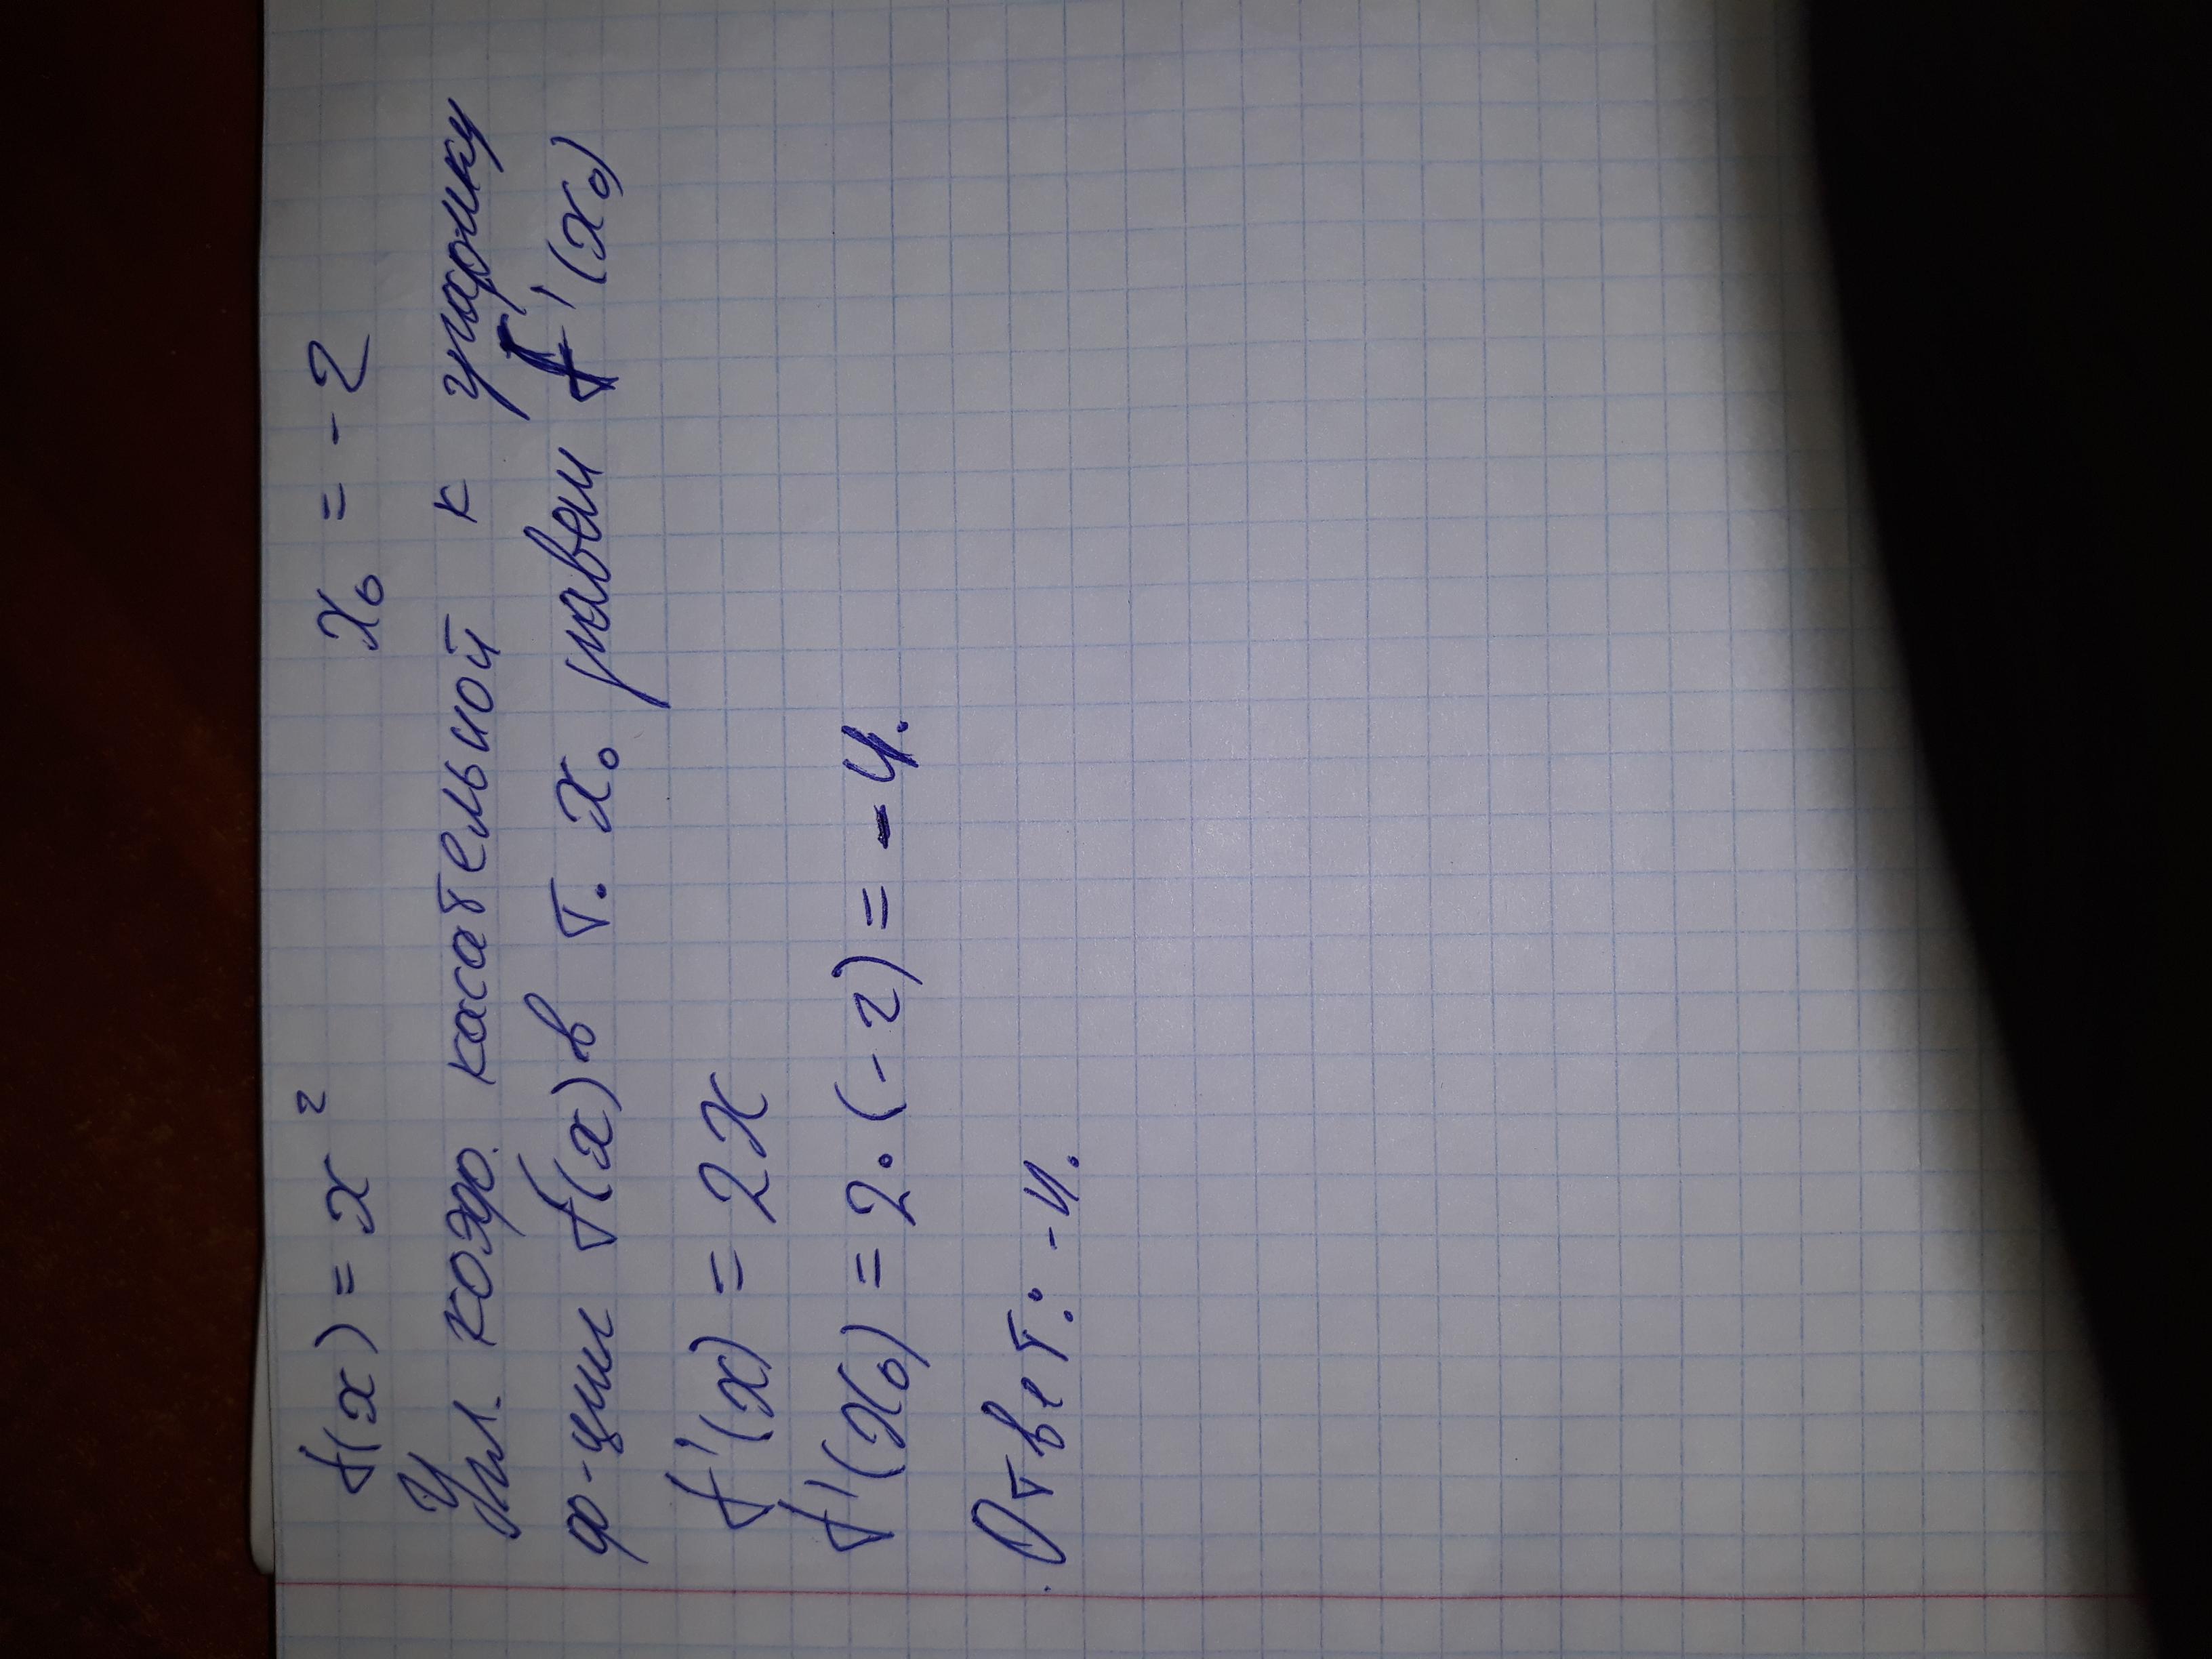 f(x) = x² x₀ = -2
Угл. коэф. касательной к графику
ф-ции f(x) в т. x₀ равен f'(x₀)
f'(x) = 2x
f'(x₀) = 2·(-2) = -4.
Ответ: -4.